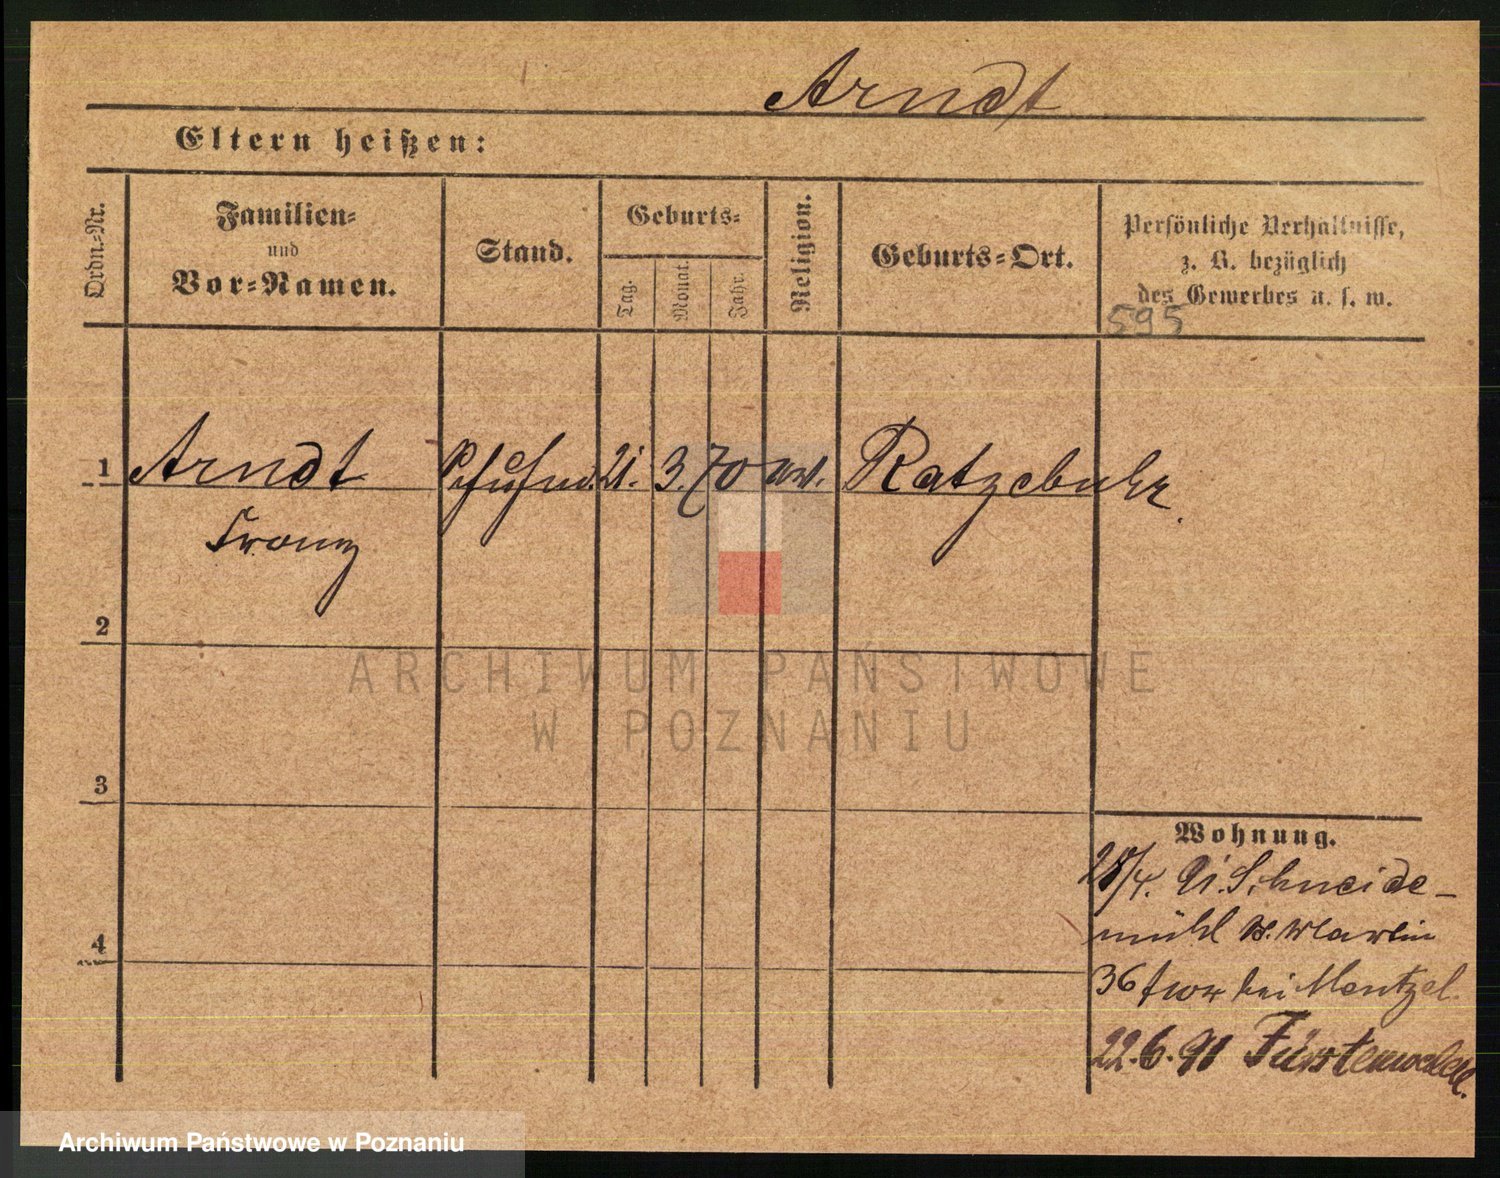 Arndt
Eltern heißen:
Ordn.-Nr.
Familien-
und
Vor-Namen.
Stand.
Geburts-
Tag.
Monat.
Jahr.
Religion.
Geburts-Ort.
Persönliche Verhältnisse,
z. B. bezüglich
des Gewerbes u. s. w.
595
1 Arndt 21. 3. 70 Ratzebuhr
Franz
2
ARCHIWUM PAŃSTWOWE
W POZNANIU
3
Wohnung.
28/4. 91. Schneide-
4
mühl
36 bei Mentzel.
22.6.91 Fürstenwalde.
Archiwum Państwowe w Poznaniu